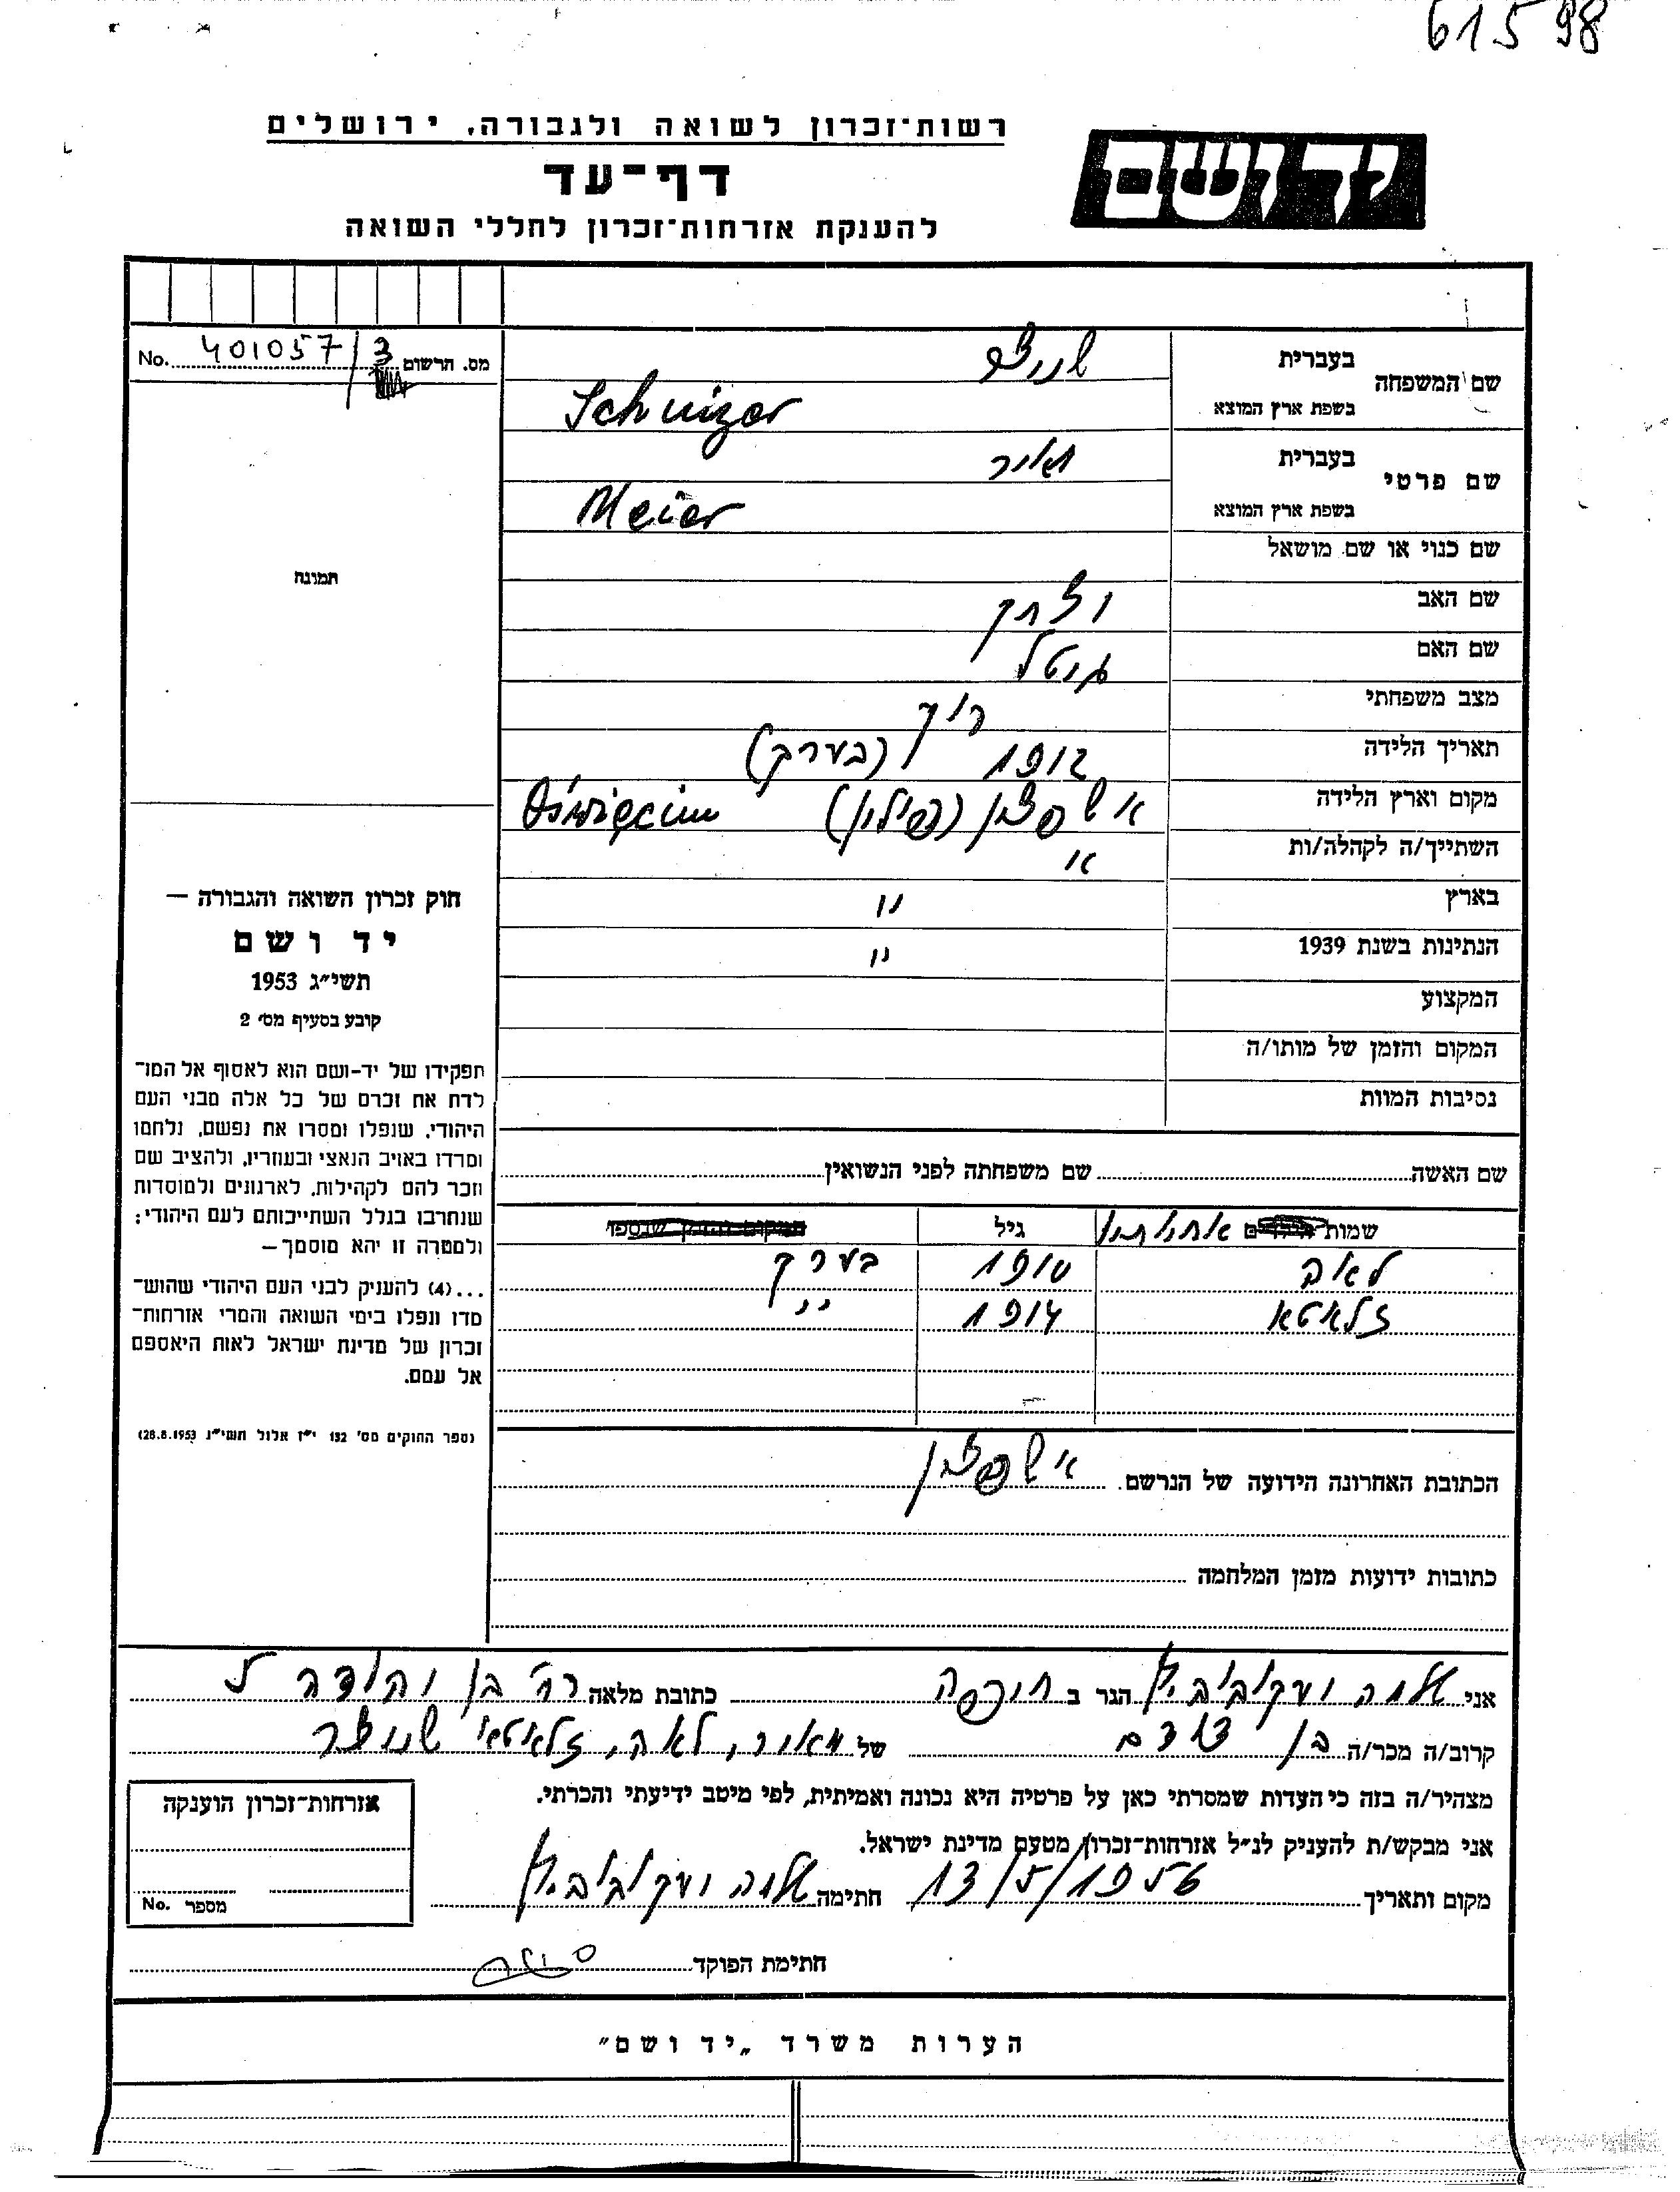 61598
רשות־זכרון לשואה ולגבורה, ירושלים
יד ושם
דף־עד
להענקת אזרחות־זכרון לחללי השואה
מס. הרשום 401057/3 No.
שם המשפחה
בעברית שניצר
בשפת ארץ המוצא Schnizer
שם פרטי
בעברית מאיר
בשפת ארץ המוצא Meier
שם כנוי או שם מושאל
תמונה
שם האב יצחק
שם האם גיטל
מצב משפחתי רוק
תאריך הלידה 1912 (בערך)
מקום וארץ הלידה אושפצין (פולין) Oświęcim
השתייך/ה לקהלה/ות
בארץ "
הנתינות בשנת 1939 "
המקצוע
המקום והזמן של מותו/ה
נסיבות המוות
חוק זכרון השואה והגבורה —
יד ושם
תשי״ג 1953
קובע בסעיף מס׳ 2
תפקידו של יד-ושם הוא לאסוף אל המו־
לדת את זכרם של כל אלה מבני העם
היהודי, שנפלו ומסרו את נפשם, נלחמו
ומרדו באויב הנאצי ובעוזריו, ולהציב שם
וזכר להם לקהילות, לארגונים ולמוסדות
שנחרבו בגלל השתייכותם לעם היהודי;
ולמטרה זו יהא מוסמך—
...(4) להעניק לבני העם היהודי שהוש־
מדו ונפלו בימי השואה והמרי אזרחות־
זכרון של מדינת ישראל לאות היאספם
אל עמם.
(ספר החוקים מס׳ 132 י״ז אלול תשי״ג 28.8.1953)
שם האשה שם משפחתה לפני הנשואין
שמות הילדים אחיותיו גיל המקום והזמן שנספו
לאה 1910 בערך
זלאטא 1914 "
הכתובת האחרונה הידועה של הנרשם. אושפצין
כתובות ידועות מזמן המלחמה
אני הגר ב חיפה כתובת מלאה רח׳ בן יהודה 5
קרוב/ה מכר/ה בן דודם של מאיר, לאה, זלאטא שניצר
מצהיר/ה בזה כי העדות שמסרתי כאן על פרטיה היא נכונה ואמיתית, לפי מיטב ידיעתי והכרתי.
אני מבקש/ת להעניק לנ״ל אזרחות־זכרון מטעם מדינת ישראל.
מקום ותאריך 13/5/1956 חתימה
אזרחות־זכרון הוענקה
מספר No.
חתימת הפוקד
הערות משרד „יד ושם״